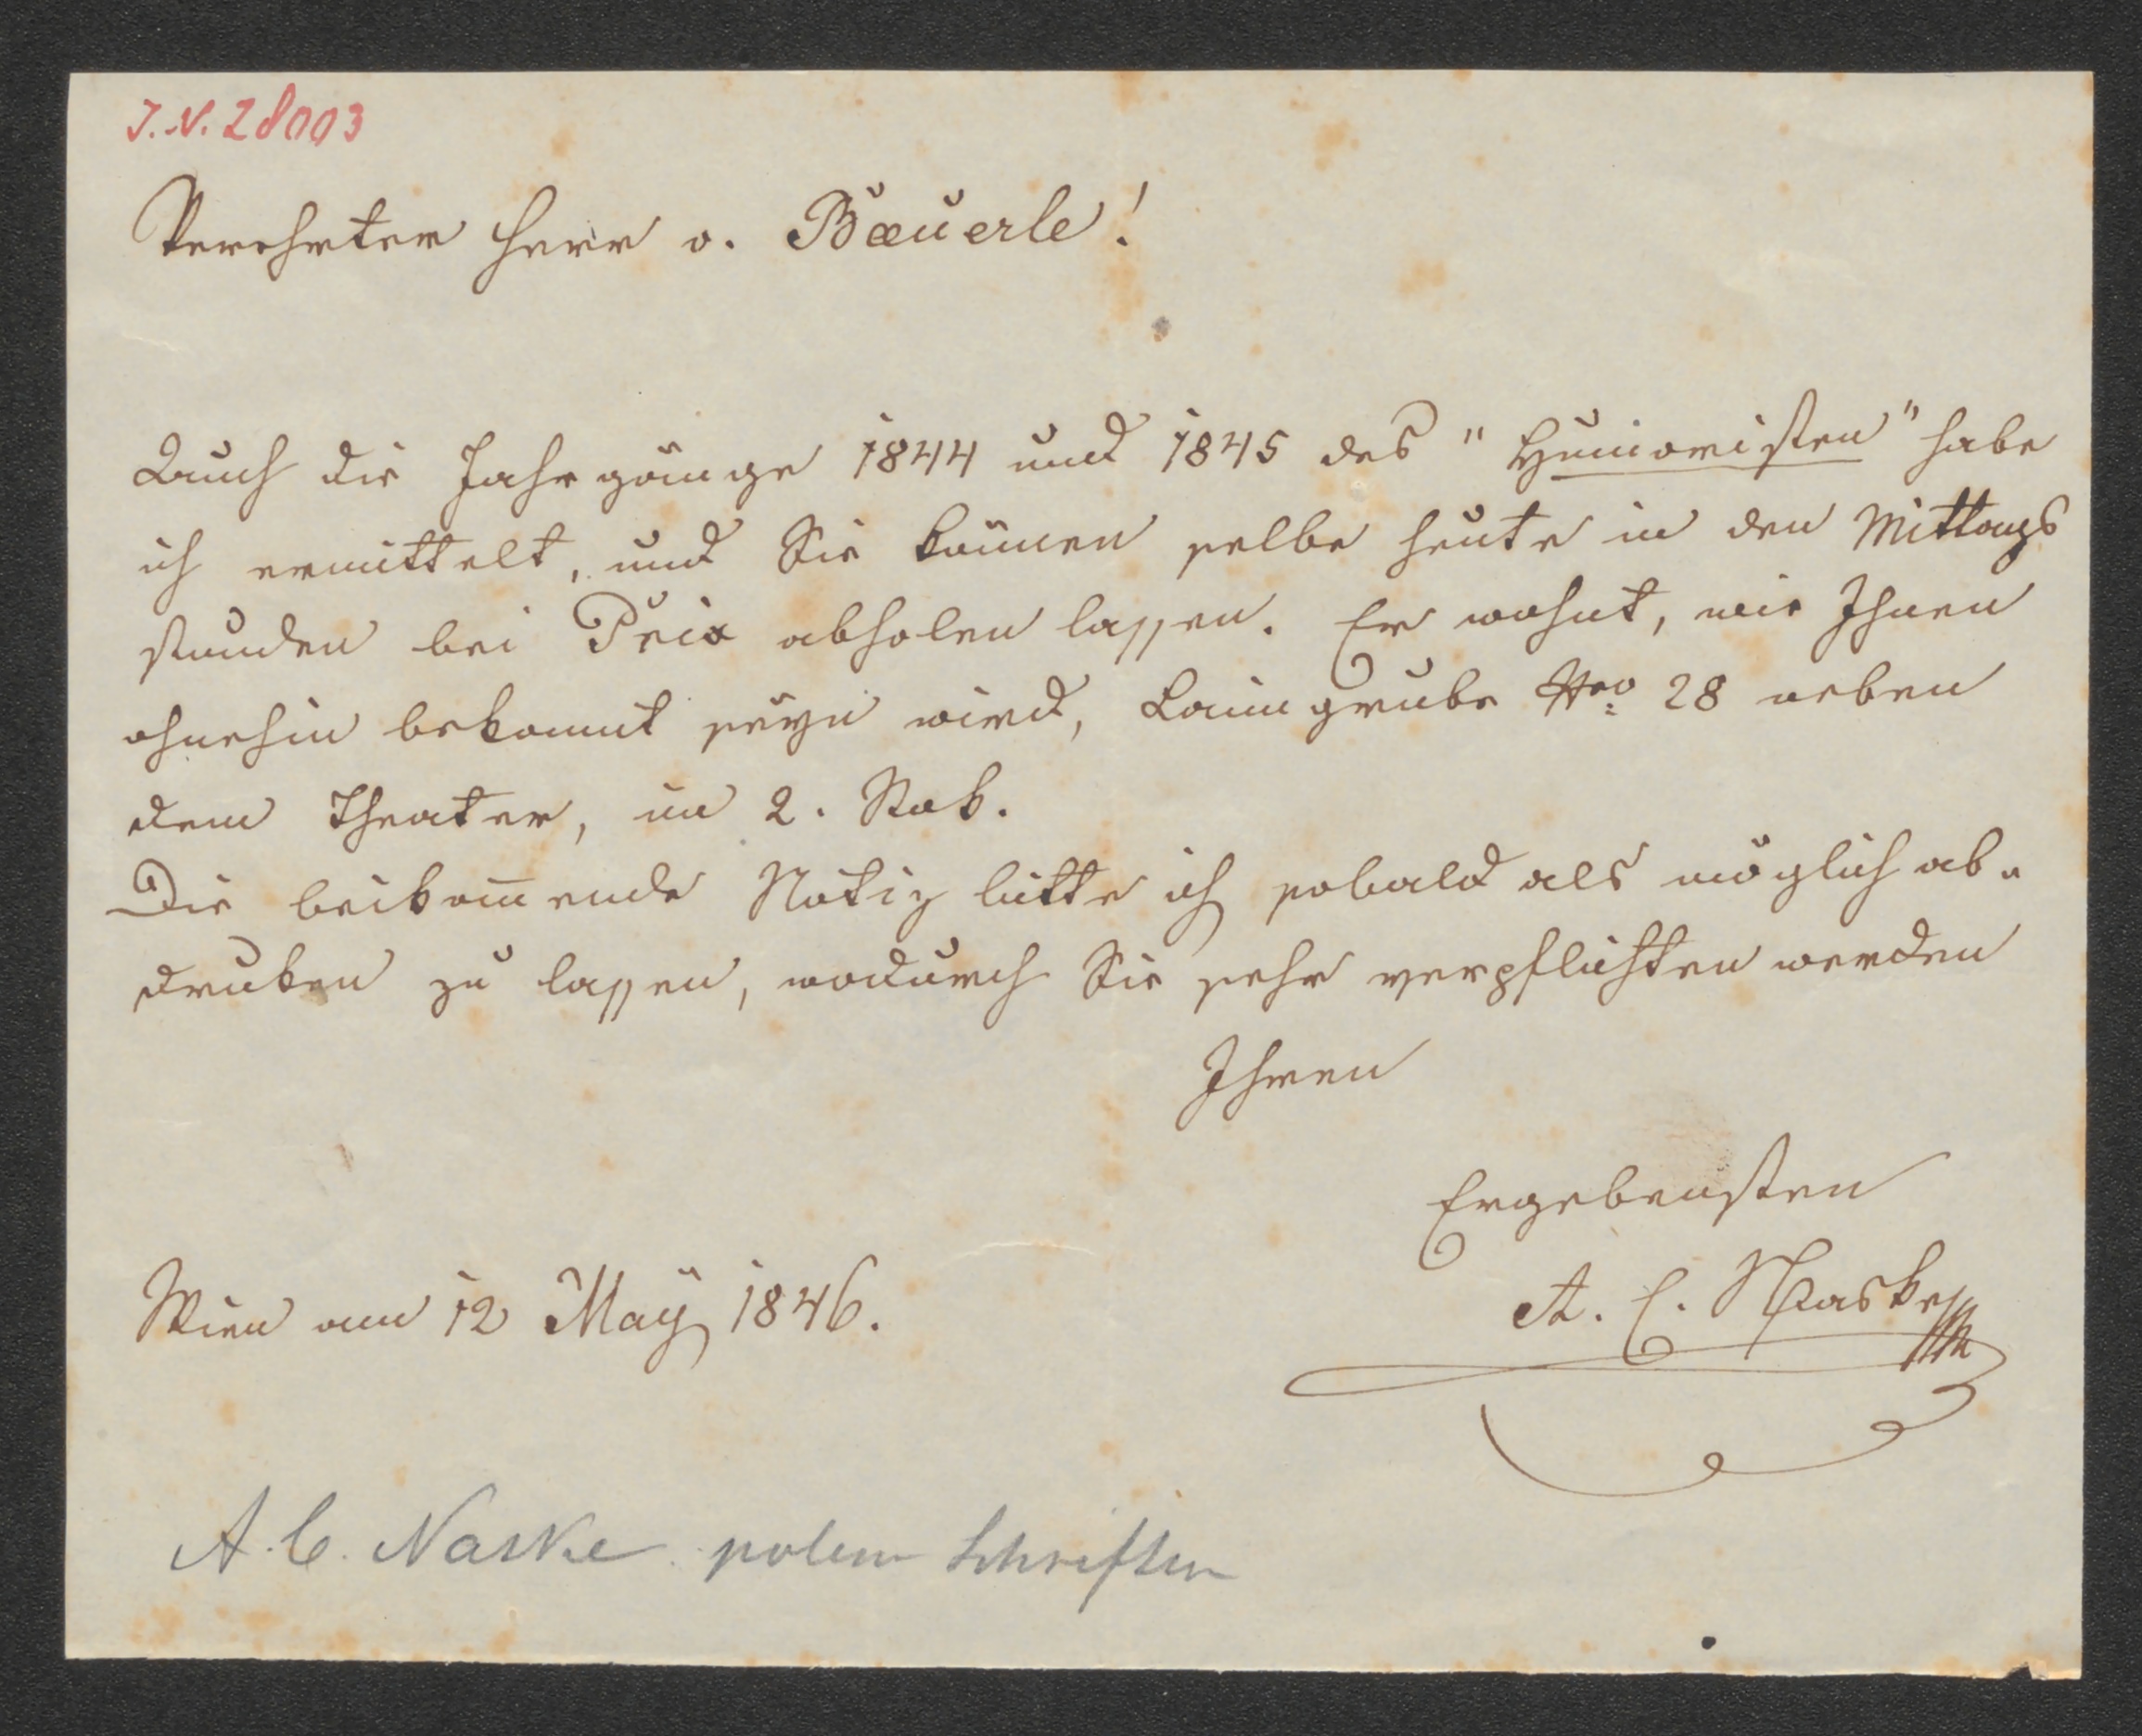 I.N. 28003
Verehrter Herr v. Bæuerle!
Auch die Jahrgänge 1844 und 1845 des "Humoristen" habe
ich ermittelt, und Sie können selbe heute in den Mittags
stunden bei Prix abholen lassen. Er wohnt, wie Ihnen
ohnehin bekannt seyn wird, Laimgrube Nro. 28 neben
dem Theater, im 2. Stok.
Die beikom̄ende Notiz bitte ich sobald als möglich ab-
druken zu lassen, wodurch Sie sehr verpflichten werden
Ihren
Ergebensten
A. C. Naske
Wien am 12 May 1846.
A. C. Naske polem Schriften